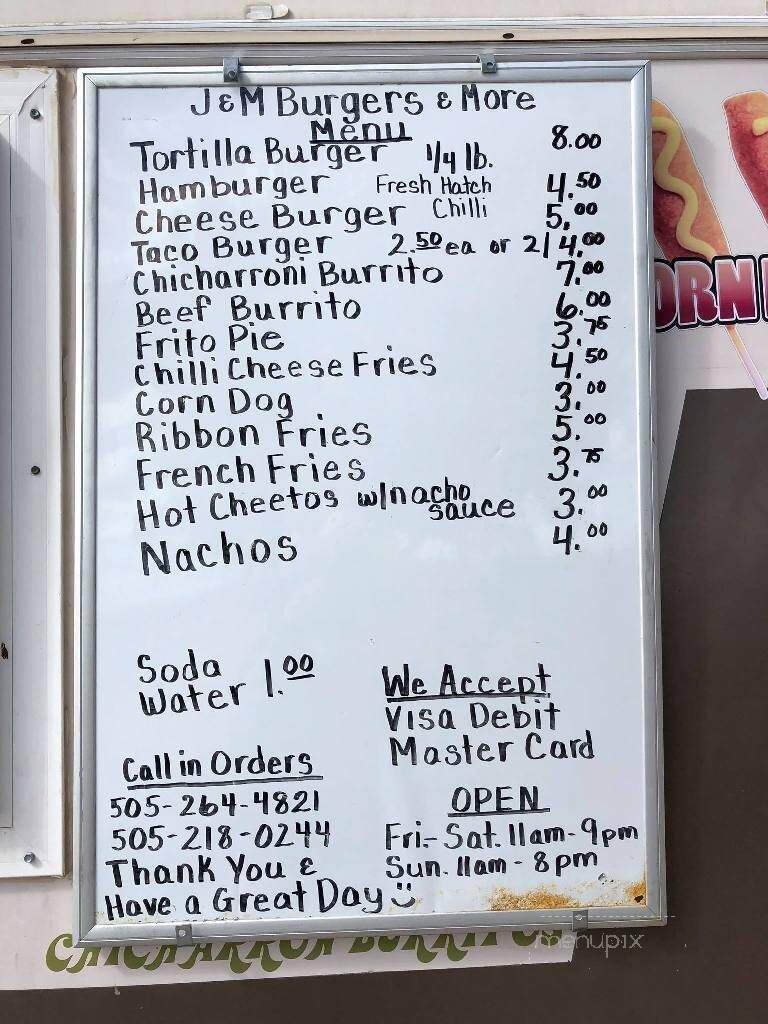 J&M Burgers & More
Menu
Tortilla Burger 1/4 lb. 8.00
Hamburger Fresh Hatch 4.50
Cheese Burger Chilli 5.00
Taco Burger 2.50 ea or 2/4.00
Chicharroni Burrito 7.00
Beef Burrito 6.00
Frito Pie 3.75
Chilli Cheese Fries 4.50
Corn Dog 3.00
Ribbon Fries 5.00
French Fries 3.75
Hot Cheetos w/nacho sauce 3.00
Nachos 4.00
Soda
Water 1.00
We Accept
Visa Debit
Master Card
Call in Orders
505-264-4821
505-218-0244
Thank You &
Have a Great Day
OPEN
Fri.-Sat. 11am-9pm
Sun. 11am-8pm
ORN
menupix